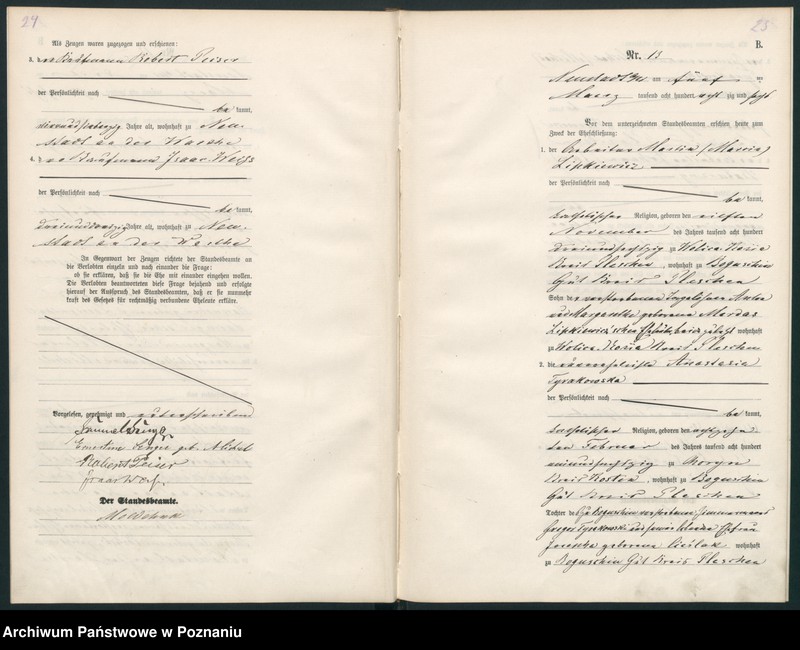 24
Als Zeugen waren zugezogen und erschienen:
3. der Kaufmann Robert Peiser
der Persönlichkeit nach
be kannt,
Jahre alt, wohnhaft zu Neu-
stadt an der Warthe
4. der Kaufmann Isaac Weiss
der Persönlichkeit nach
be kannt,
Jahre alt, wohnhaft zu Neu-
stadt an der Warthe
In Gegenwart der Zeugen richtete der Standesbeamte an
die Verlobten einzeln und nach einander die Frage:
ob sie erklären, daß sie die Ehe mit einander eingehen wollen.
Die Verlobten beantworteten diese Frage bejahend und erfolgte
hierauf der Ausspruch des Standesbeamten, daß er sie nunmehr
kraft des Gesetzes für rechtmäßig verbundene Eheleute erkläre.
Vorgelesen, genehmigt und unterschrieben
Ernestine geb.
Robert Peiser
Der Standesbeamte.
25
B.
Nr. 13
Neustadt am fünf ten
März tausend acht hundert acht zig und sechs
Vor dem unterzeichneten Standesbeamten erschien heute zum
Zweck der Eheschließung:
1. der Arbeiter Martin (Marcin)
Lipkiewicz
der Persönlichkeit nach
be kannt,
katholischer Religion, geboren den elften
November des Jahres tausend acht hundert
dreiundsechzig zu Wolica
Kreis Pleschen, wohnhaft zu Boguschin
Gut Kreis Pleschen
Sohn des verstorbenen
und Margarethe geborene
Lipkiewicz'schen wohnhaft
zu Wolica Kreis Pleschen
2. die unverehelichte Anastasia
Tyrakowska
der Persönlichkeit nach
be kannt,
katholischer Religion, geboren den achtzehn-
ten Februar des Jahres tausend acht hundert
einundsechzig zu
Kreis Kosten, wohnhaft zu Boguschin
Gut Kreis Pleschen
Tochter des Boguschin verstorbenen
Tyrakowski und
geborene Cieślak wohnhaft
zu Boguschin Gut Kreis Pleschen
Archiwum Państwowe w Poznaniu